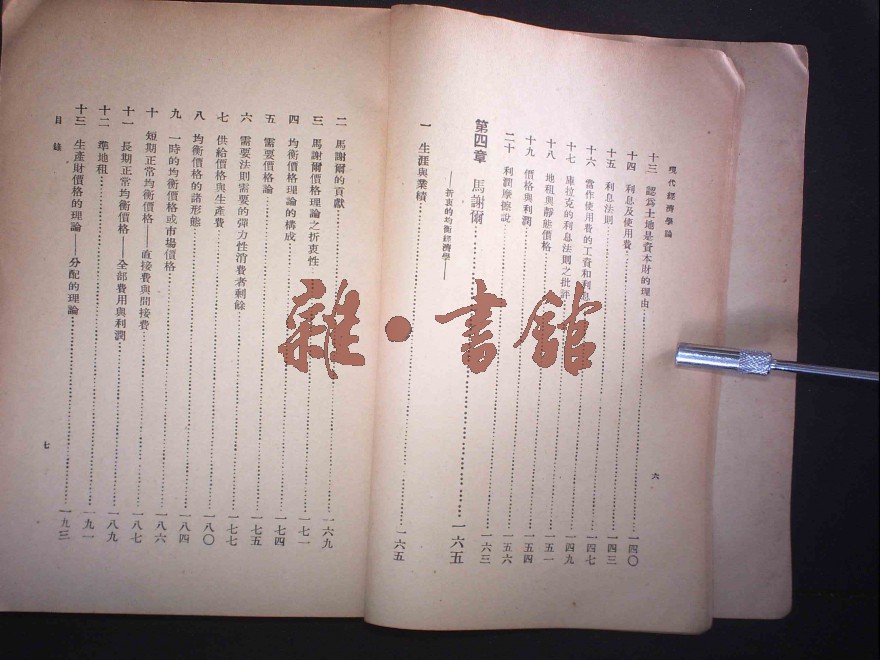 現代經濟學論
十三 認爲土地是資本財的理由……一四〇
十四 利息及使用費……一四三
十五 利息法則……一四七
十六 當作使用費的工資和利息……一四九
十七 庫拉克的利息法則之批評……一五一
十八 地租與靜態價格……一五四
十九 價格與利潤……一五六
二十 利潤摩擦說……一六三
第四章 馬謝爾……一六五
——折衷的均衡經濟學——
一 生涯與業績……一六五
六
二 馬謝爾的貢獻……一六九
三 馬謝爾價格理論之折衷性……一七一
四 均衡價格理論的構成……一七四
五 需要價格論……一七五
六 需要法則需要的彈力性消費者剩餘……一七七
七 供給價格與生產費……一八〇
八 均衡價格的諸形態……一八四
九 一時的均衡價格或市場價格……一八六
十 短期正常均衡價格——直接費與間接費……一八七
十一 長期正常均衡價格——全部費用與利潤……一八九
十二 準地租……一九一
十三 生產財價格的理論——分配的理論……一九三
目錄
七
雜·書館